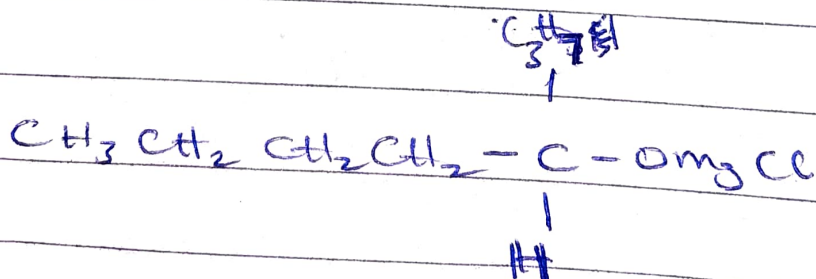 C3H7
|
CH3 CH2 CH2 CH2 - C - OMg Cl
|
H